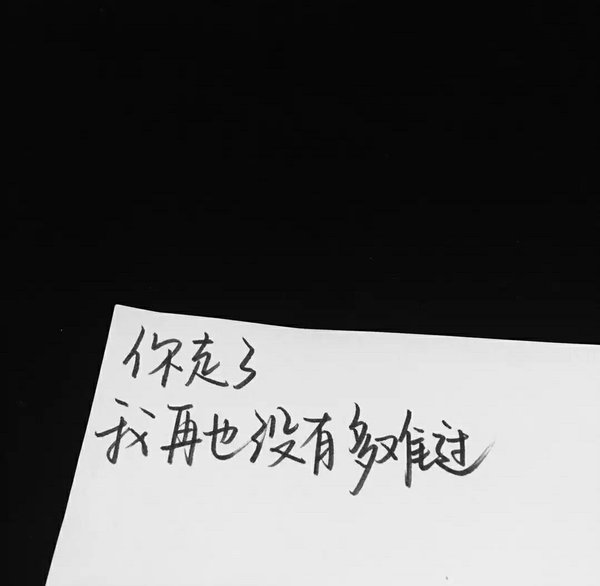 你走了
我再也没有多难过